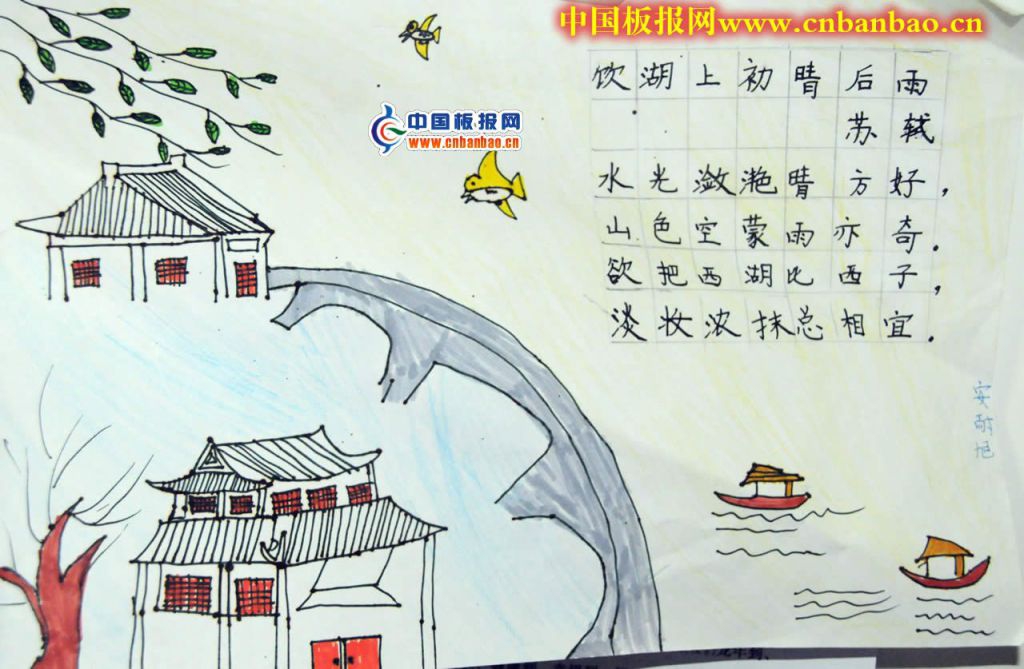 中国板报网www.cnbanbao.cn
中国板报网
www.cnbanbao.cn
饮湖上初晴后雨
苏轼
水光潋滟晴方好，
山色空蒙雨亦奇.
欲把西湖比西子，
淡妆浓抹总相宜.